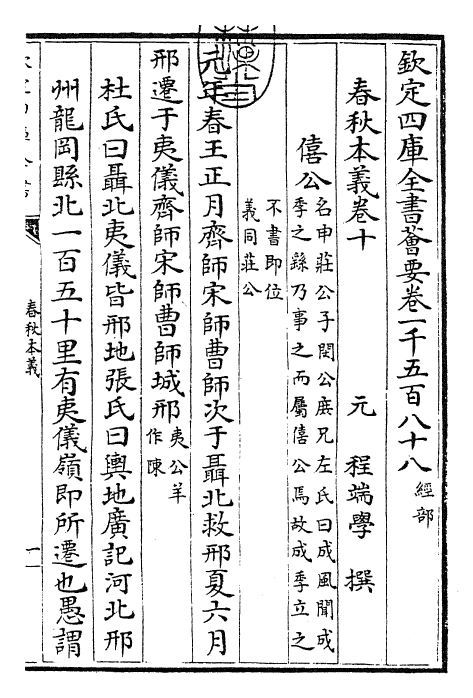 欽定四庫全書薈要卷一千五百八十八 經部
春秋本義卷十
元 程端學 撰
僖公 名申莊公子閔公庶兄左氏曰成風聞成
季之繇乃事之而屬僖公焉故成季立之
不書即位
義同莊公
元年春王正月齊師宋師曹師次于聶北救邢夏六月
邢遷于夷儀齊師宋師曹師城邢 夷公羊
作陳
杜氏曰聶北夷儀皆邢地張氏曰輿地廣記河北邢
州龍岡縣北一百五十里有夷儀嶺即所遷也愚謂
春秋本義
一